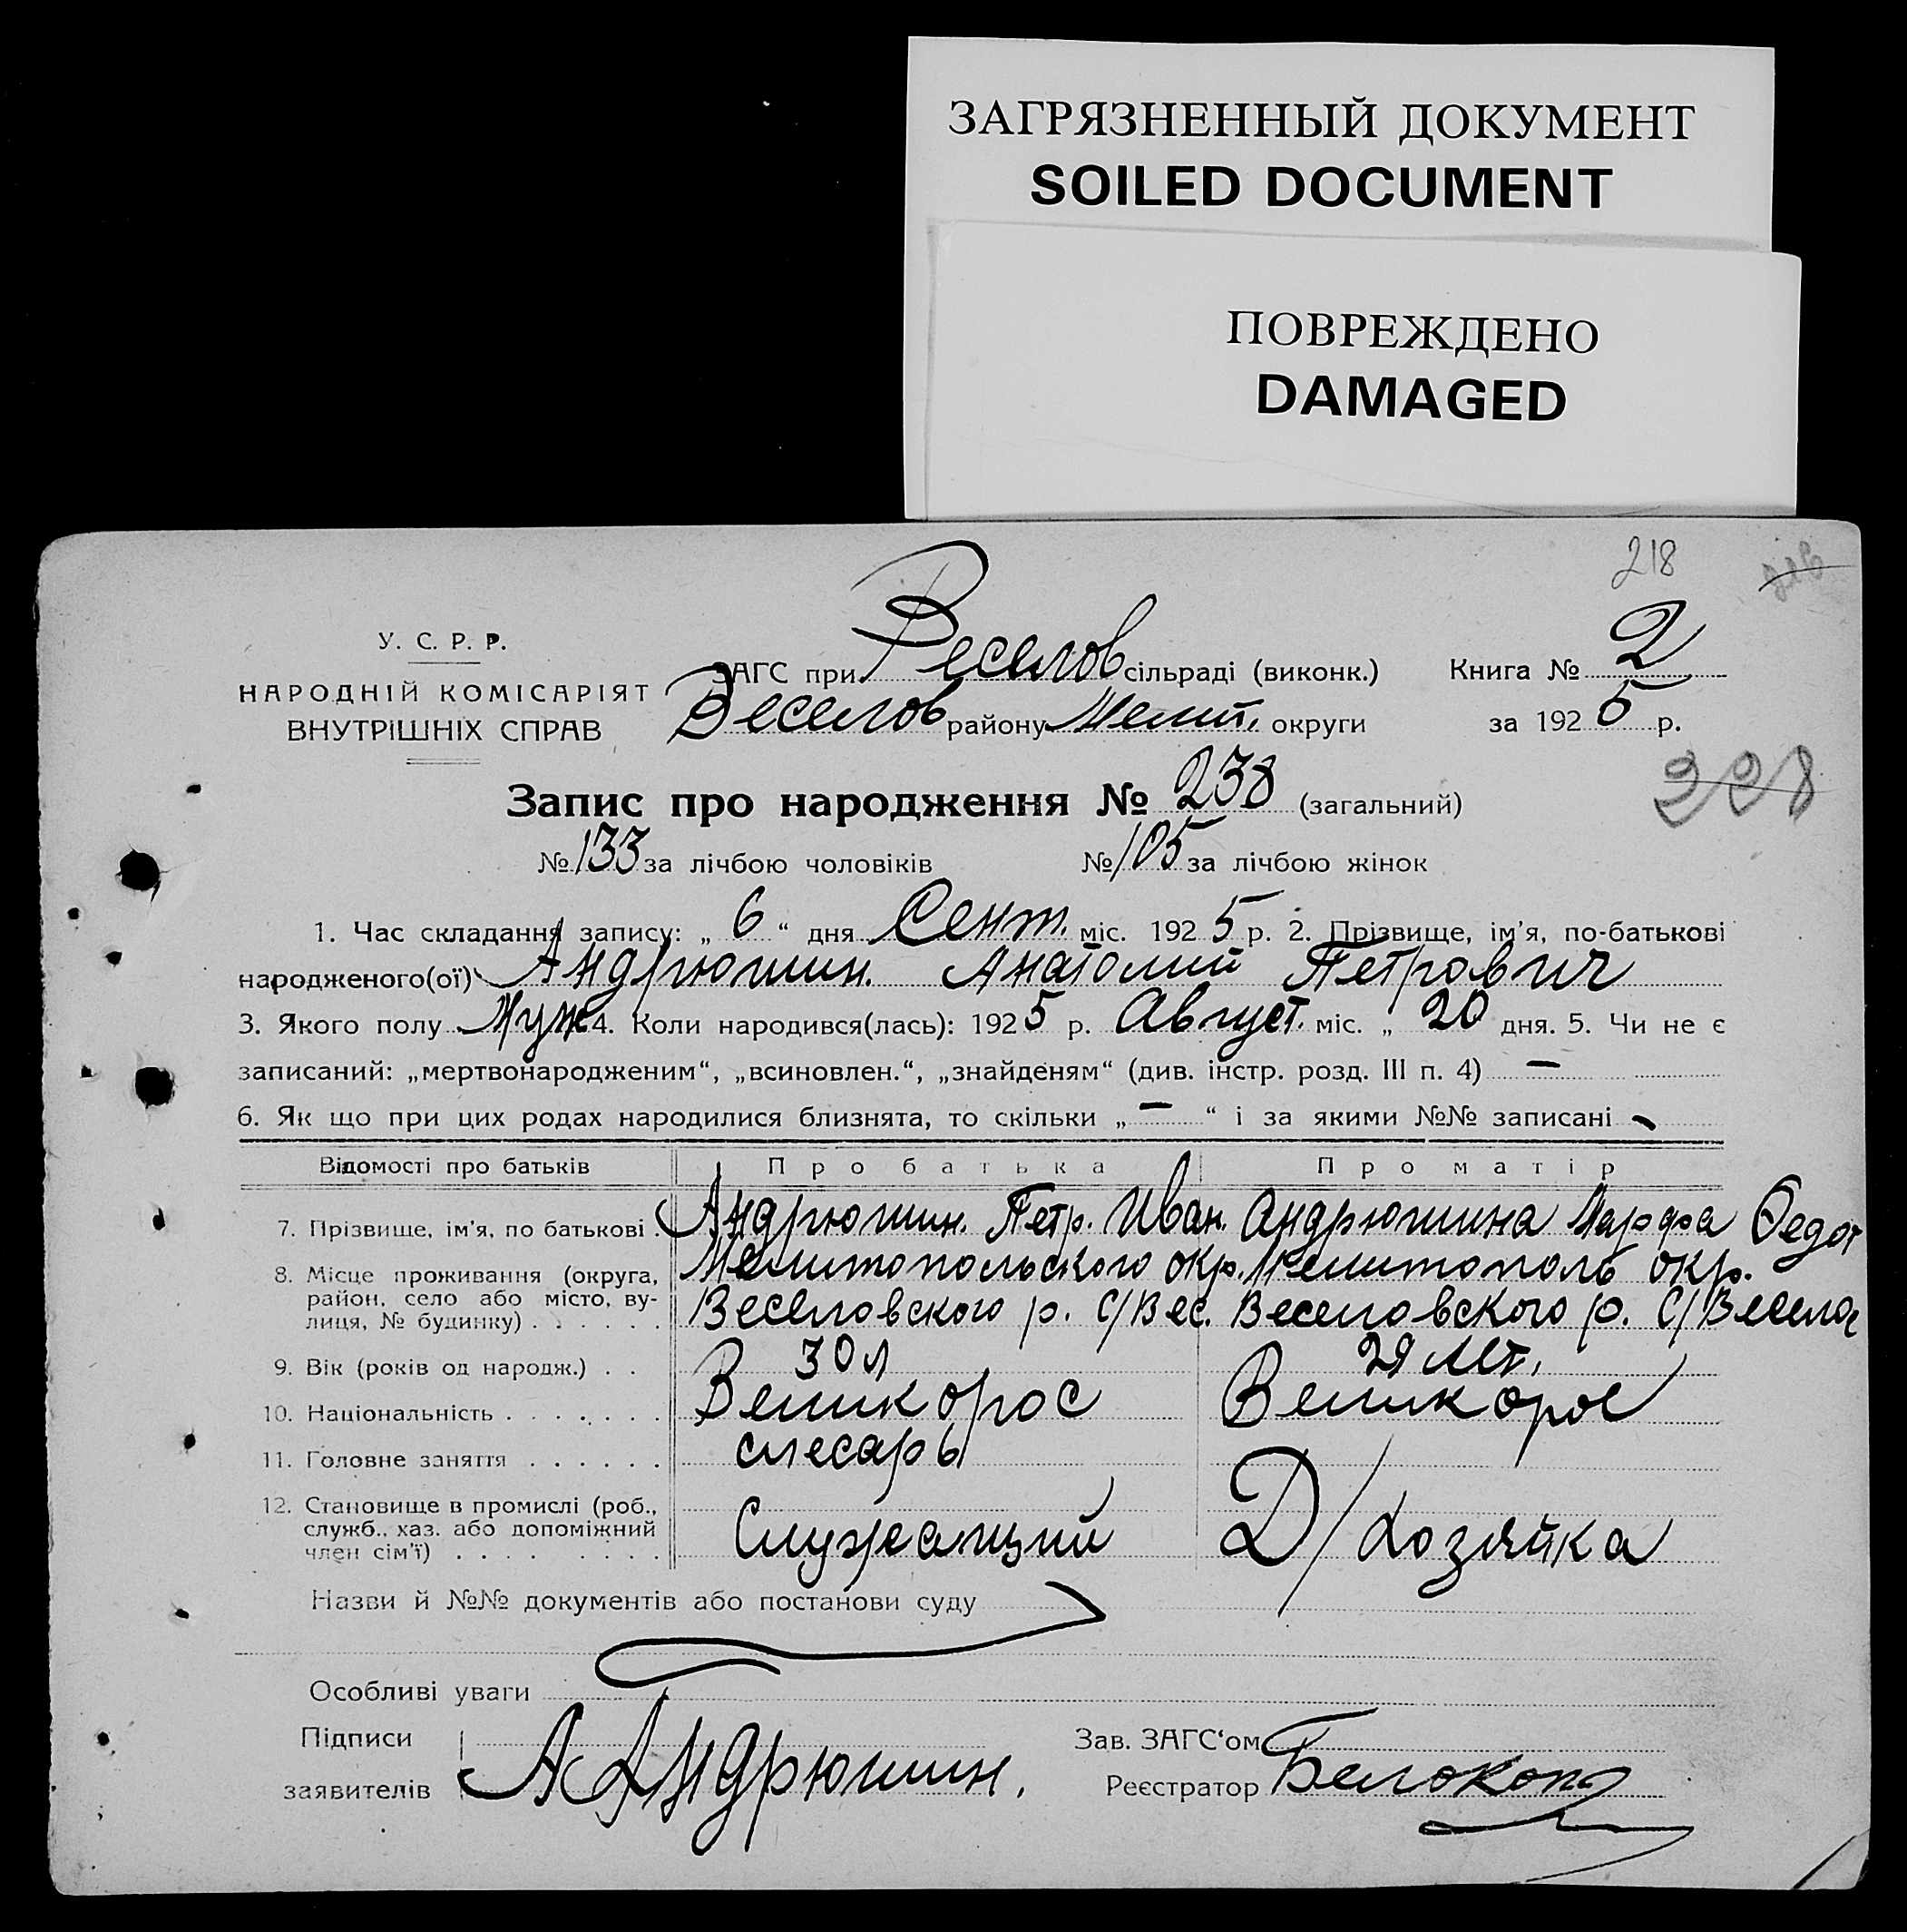 ЗАГРЯЗНЕННЫЙ ДОКУМЕНТ
SOILED DOCUMENT
ПОВРЕЖДЕНО
DAMAGED
218
У. С. Р. Р.
НАРОДНІЙ КОМІСАРІЯТ
ВНУТРІШНІХ СПРАВ
ЗАГС при Веселов сільраді (виконк.) Книга № 2
Веселов району Мелит. округи за 1925 р.
Запис про народження № 238 (загальний)
228
№ 133 за лічбою чоловіків № 105 за лічбою жінок
1. Час складання запису: „ 6 “ дня Сент. міс. 1925 р. 2. Прізвище, ім'я, по-батькові
народженого(ої) Андрюшин. Анатолий Петрович
3. Якого полу Муж 4. Коли народився(лась): 1925 р. Август. міс. „ 20 дня. 5. Чи не є
записаний: „мертвонародженим“, „всиновлен.“, „знайденям“ (див. інстр. розд. III п. 4) —
6. Як що при цих родах народилися близнята, то скільки „ — “ і за якими №№ записані -
Відомості про батьків Про батька Про матір
7. Прізвище, ім'я, по батькові . Андрюшин. Петр. Иван. Андрюшина Марфа Федот
8. Місце проживання (округа, район, село або місто, вулиця, № будинку) . . . . . . Мелитопольского окр. Мелитополь окр.
Веселовского р. С/Вес. Веселовского р. С/Весело
9. Вік (років од народж.) . . 30 л 29 лет.
10. Національність . . . . . . . Великорос Великорос
11. Головне заняття . . . . . . слесарь
12. Становище в промислі (роб.,
служб., хаз. або допоміжний
член сім'ї) . . . . . . . . Служащий Д/хозяйка
Назви й №№ документів або постанови суду
Особливі уваги
Підписи
заявителів А Андрюшин.
Зав. ЗАГС'ом
Реєстратор Белокоп